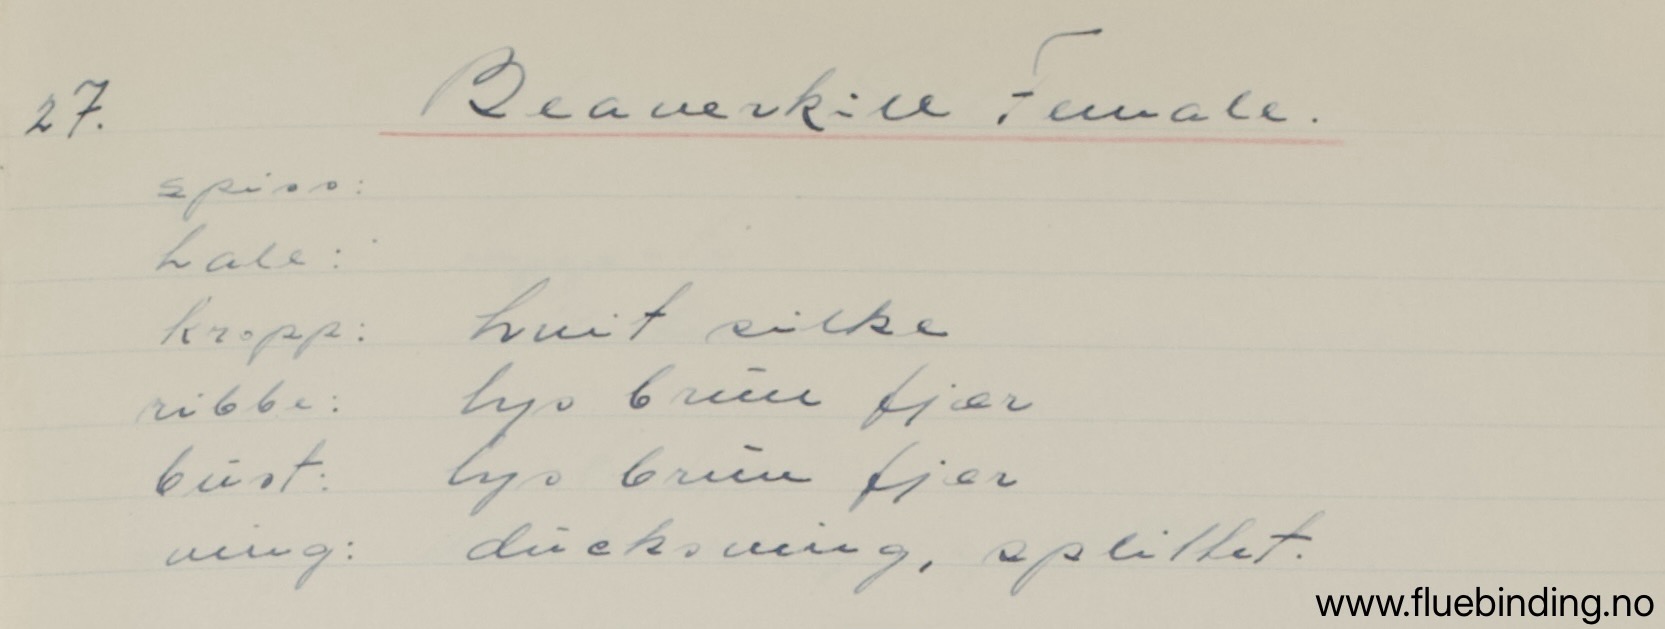 27. Beaverkill Female.
spiss:
hale:
kropp: hvit silke
ribbe: lys brun fjær
bust: lys brun fjær
ving: ducksving, splittet.
www.fluebinding.no